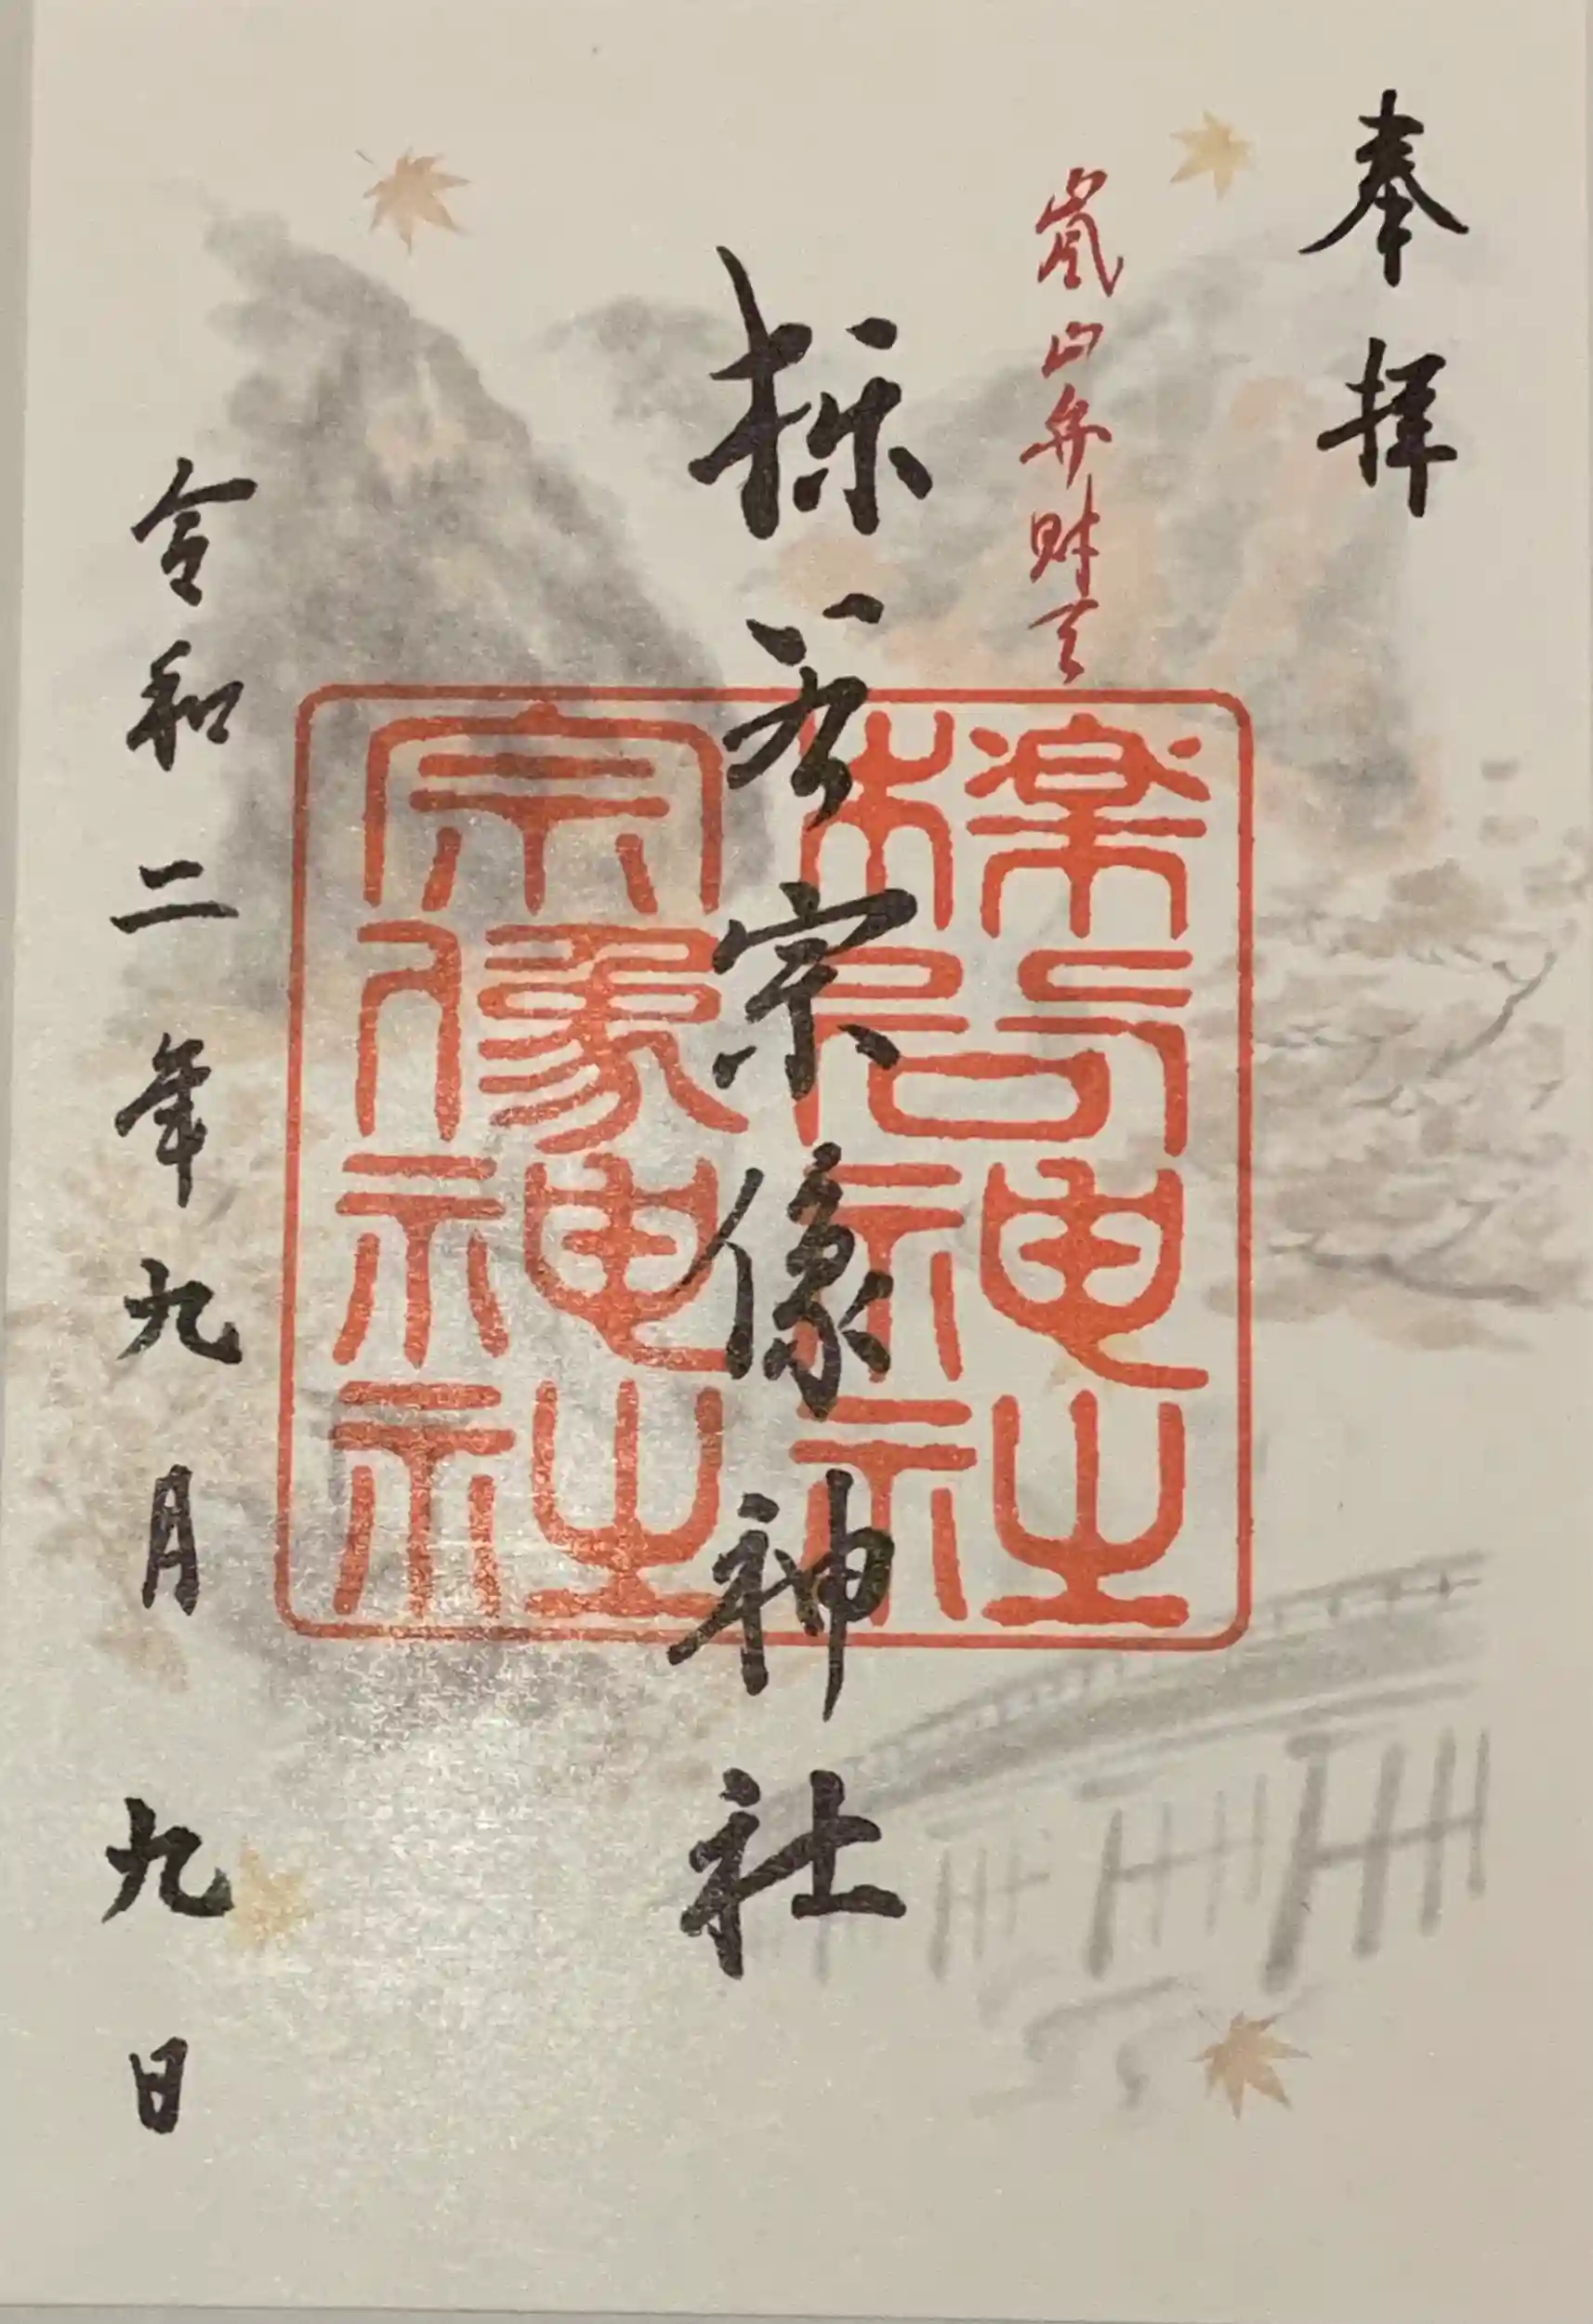 奉拝
嵐山弁財天
櫟谷宗像神社
令和二年九月九日
檪谷神社
宗像神社